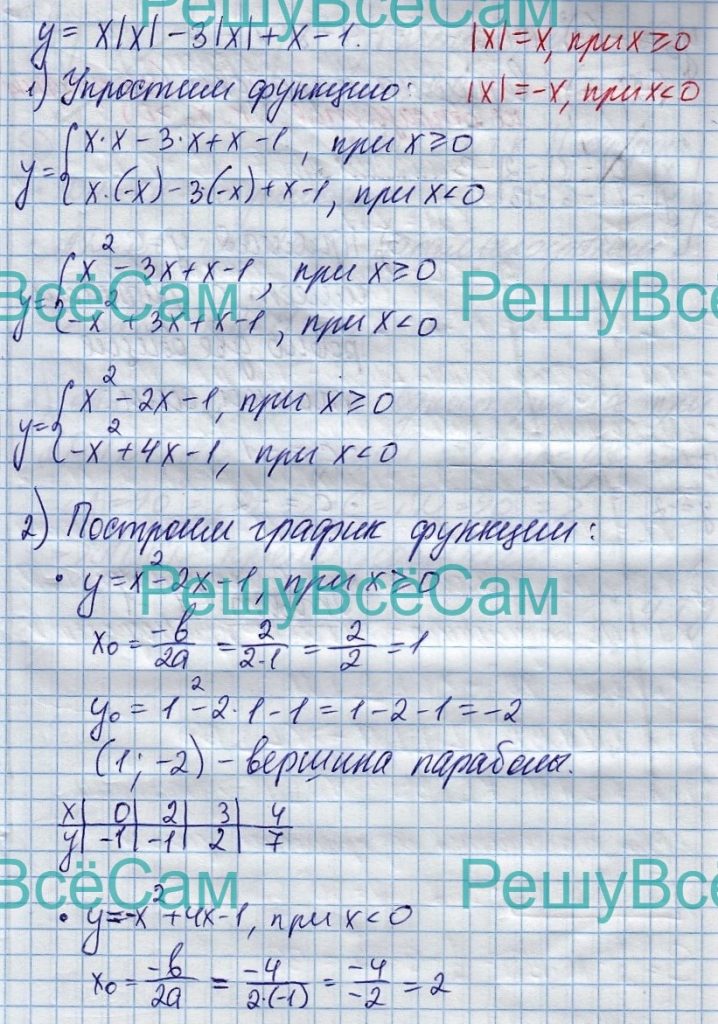 РешуВсёСам
y = x|x| - 3|x| + x - 1. |x| = x, при x ≥ 0
1) Упростим функцию: |x| = -x, при x < 0
y = { x·x - 3·x + x - 1, при x ≥ 0
x·(-x) - 3·(-x) + x - 1, при x < 0
y = { x² - 3x + x - 1, при x ≥ 0
ВсёСам РешуВсё
-x² + 3x + x - 1, при x < 0
y = { x² - 2x - 1, при x ≥ 0
-x² + 4x - 1, при x < 0
2) Построим график функции:
• y = x² - 2x - 1, при x ≥ 0
РешуВсёСам
x₀ = -b/2a = 2/2·1 = 2/2 = 1
y₀ = 1² - 2·1 - 1 = 1 - 2 - 1 = -2
(1; -2) - вершина параболы.
x | 0 | 2 | 3 | 4
y | -1 | -1 | 2 | 7
ВсёСам РешуВсё
• y = -x² + 4x - 1, при x < 0
x₀ = -b/2a = -4/2·(-1) = -4/-2 = 2